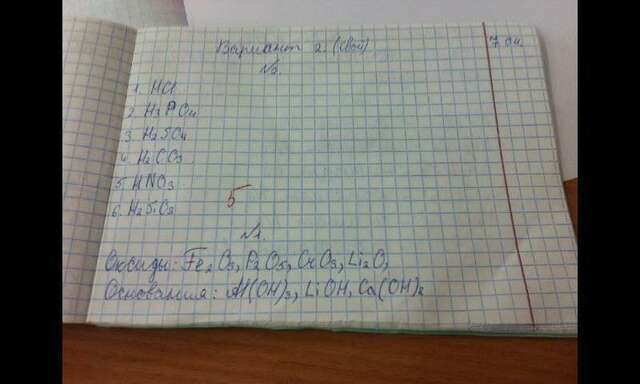 Вариант 2. (свой) 7 он.
№2.
1. HCl
2. H3PO4
3. H2SO4
4. H2CO3
5. HNO3
6. H2SiO3
5
№1.
Оксиды: Fe2O3, P2O5, CrO3, Li2O,
Основания: Al(OH)3, LiOH, Ca(OH)2